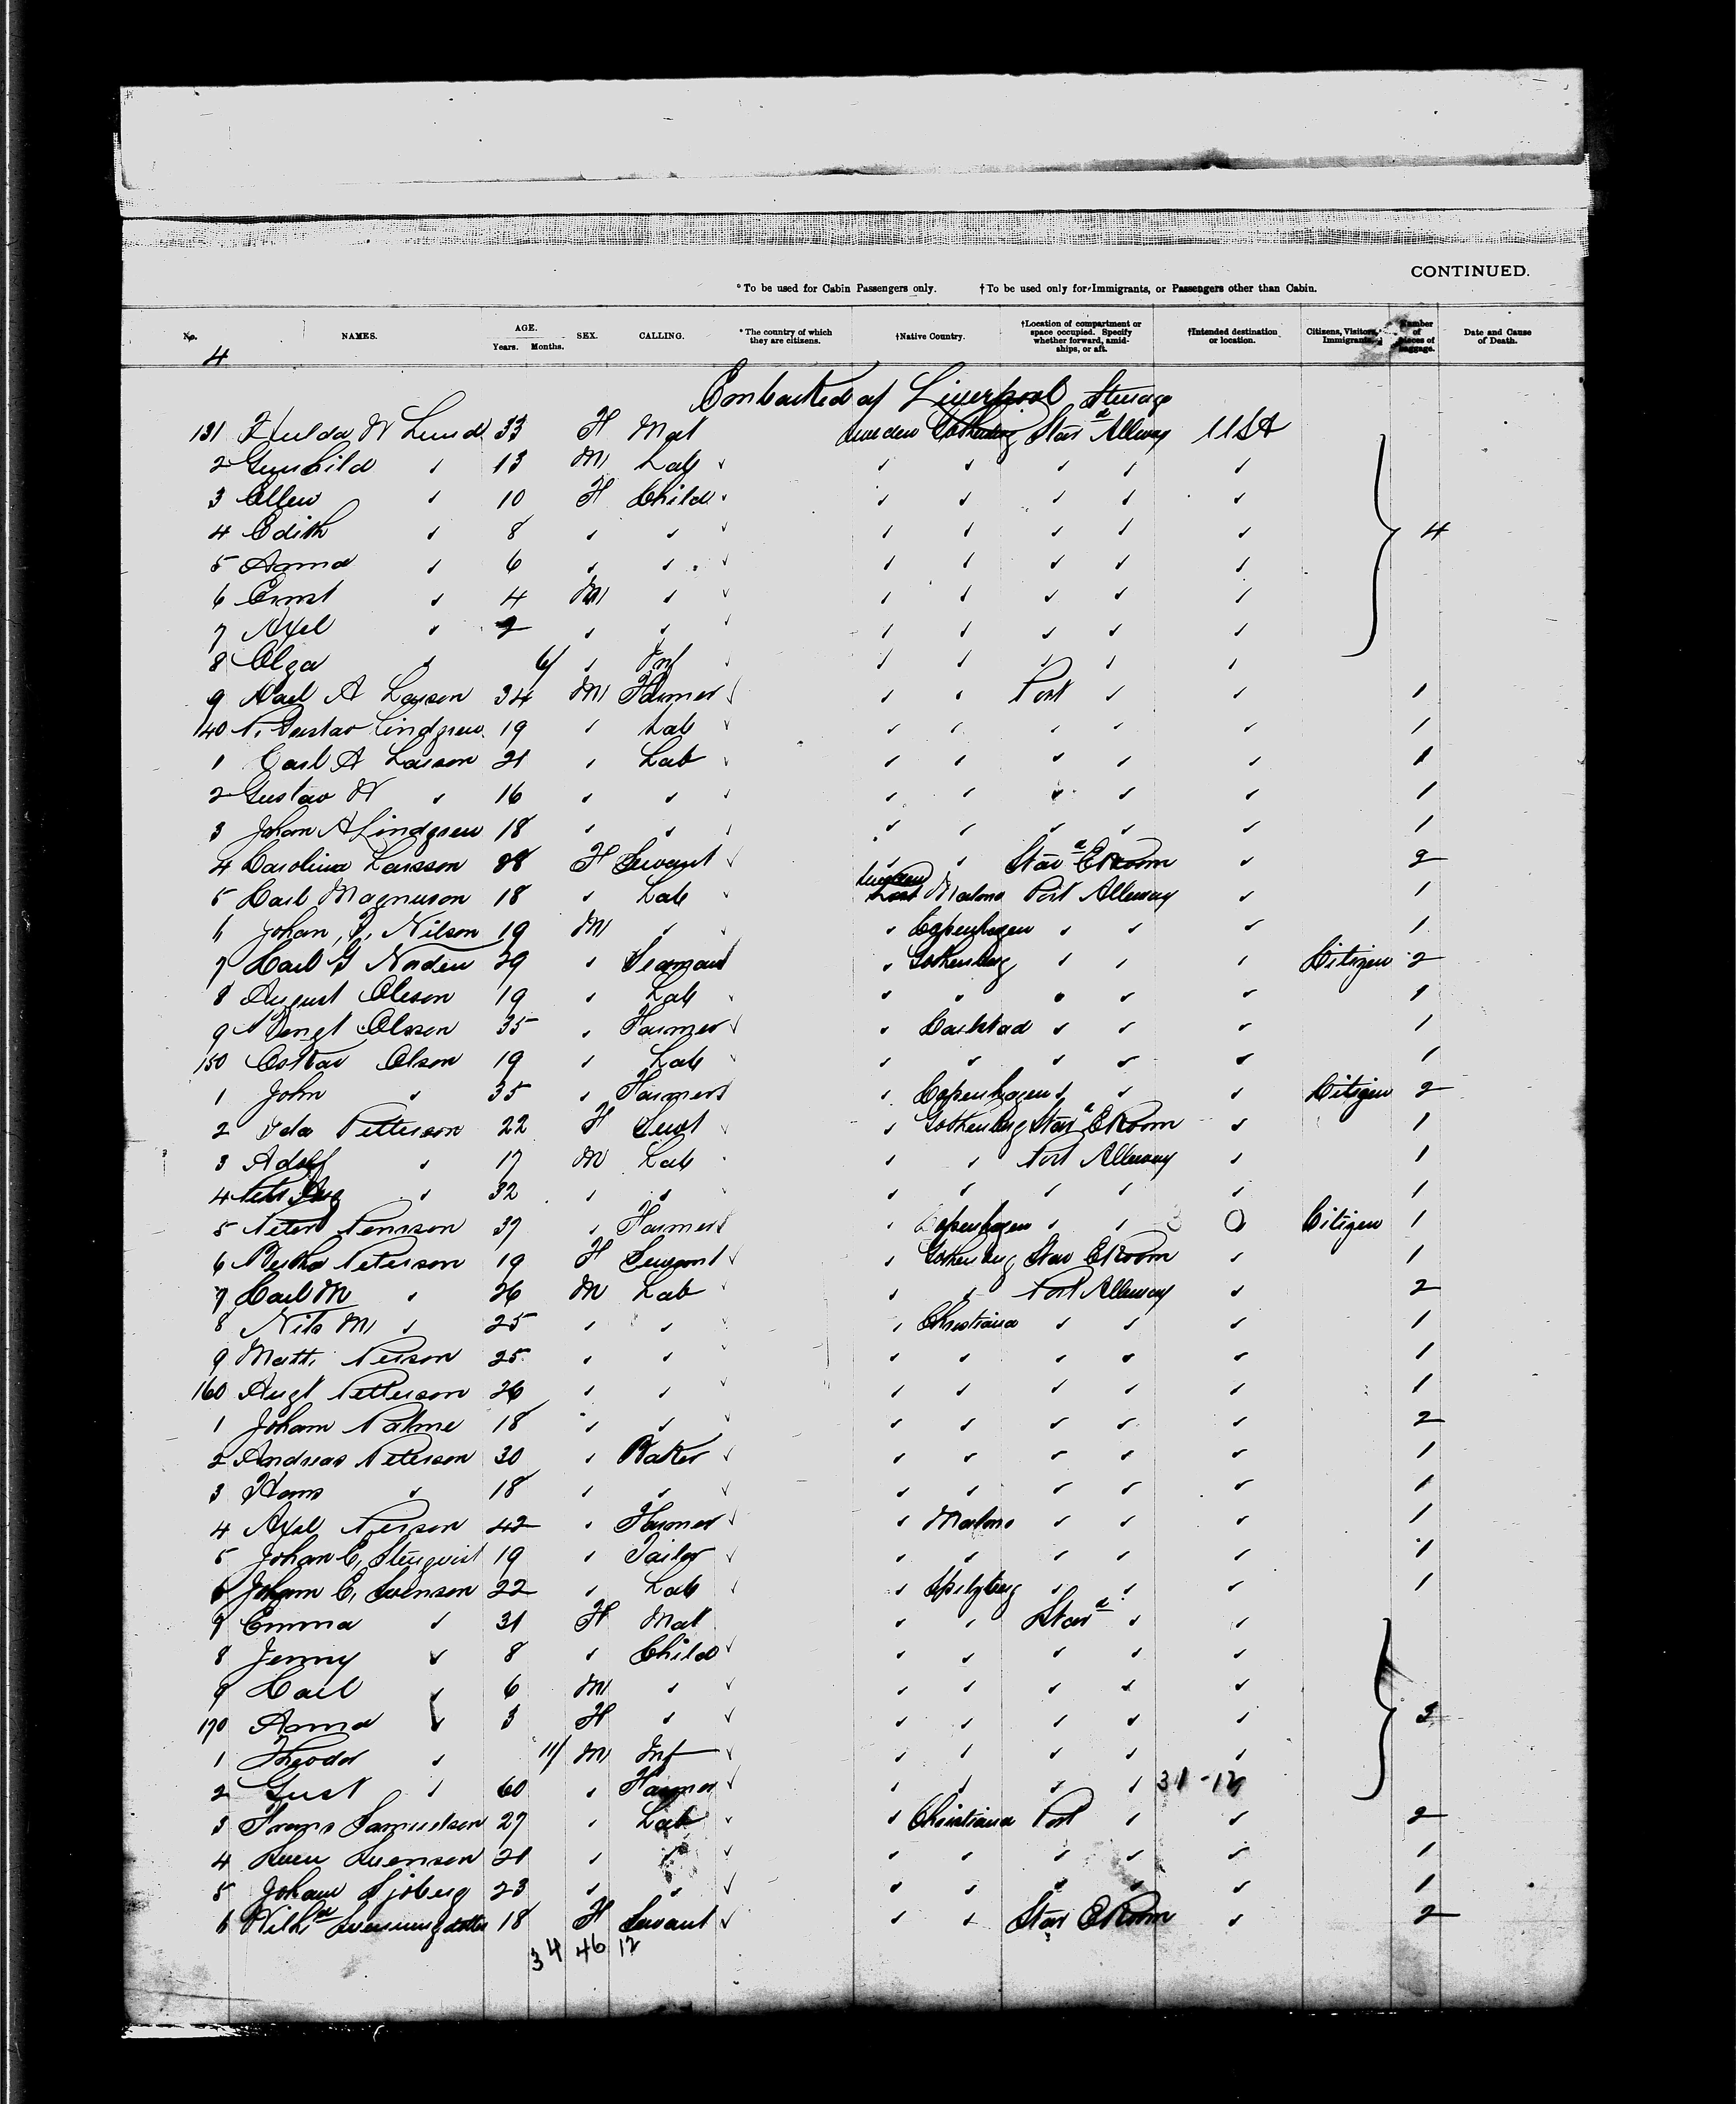 CONTINUED.
*To be used for Cabin Passengers only. †To be used only for Immigrants, or Passengers other than Cabin.
No. NAMES. AGE. Years. Months. SEX. CALLING. *The country of which they are citizens. †Native Country. †Location of compartment or space occupied. Specify whether forward, amidships, or aft. †Intended destination or location. Citizens, Visitors, Immigrants. Number of pieces of baggage. Date and Cause of Death.
4
Embarked at Liverpool Steerage
131 Hulda W Lund 33 F Mat Sweden Gothenburg Star Alleway USA
2 Gunhild " 13 M Lab " " " " "
3 Ellen " 10 F Child " " " " "
4 Edith " 8 " " " " " " " 4
5 Anna " 6 " " " " " " "
6 Ernst " 4 M " " " " " "
7 Axel " 2 " " " " " " "
8 Olga " 6/ " Inf " " " " "
9 Karl A Larson 34 M Farmer " " Port " " 1
140 N. Gustav Lindgren 19 " Lab " " " " " 1
1 Carl A Larson 21 " Lab " " " " " 1
2 Gustav W " 16 " " " " " " " 1
3 Johan A Lindgren 18 " " " " " " " 1
4 Carolina Larsson F Servant " " Star E Room " 2
5 Carl Magnuson 18 " Lab Malmo Port Alleway " 1
6 Johan, Nilson 19 M " " Copenhagen " " " 1
7 Carl G Norden 29 " Seaman " Gothenburg " " " Citizen 2
8 August Oleson 19 " Lab " " " " " 1
9 Bengt Olsson 35 " Farmer " Carlstad " " " 1
150 Oskar Olson 19 " Lab " " " " " 1
1 John " 35 " Farmer " Copenhagen " " " Citizen 2
2 Ida Petterson 22 F Servt " Gothenburg Star E Room " 1
3 Adolf " 17 M Lab " " Port Alleway " 1
4 " 32 " " " " " " " 1
5 Peter 37 " Farmer " Copenhagen " " Citizen 1
6 Bertha Peterson 19 F Servant " Gothenburg Star E Room " 1
7 Carl M " 26 M Lab " " Port Alleway " 2
8 Nils M " 25 " " " Christiana " " " 1
9 Matti 25 " " " " " " " 1
160 Augt Petterson 26 " " " " " " " 1
1 Johann Palme 18 " " " " " " " 2
2 Andreas Peterson 30 " Baker " " " " " 1
3 Hans " 18 " " " " " " " 1
4 Axel 42 " Farmer " Malmo " " " 1
5 Johan E, 19 " Tailor " " " " " 1
6 Johan E, Svenson 22 " Lab " " " " 1
7 Emma " 31 F Mat " " Star " "
8 Jenny " 8 " Child " " " " "
9 Carl " 6 M " " " " " "
170 Anna " 3 F " " " " " " 3
1 Theodor " 11/ M Inf " " " " "
2 Gust " 60 " Farmer " " " "
3 Frans Samuelson 27 " Lab " Christiana Port " " 2
4 Sven Svenson 21 " " " " " " " 1
5 Johan Sjoberg 23 " " " " " " " 1
6 18 F Servant " " Star E Room " 2
34 46 12